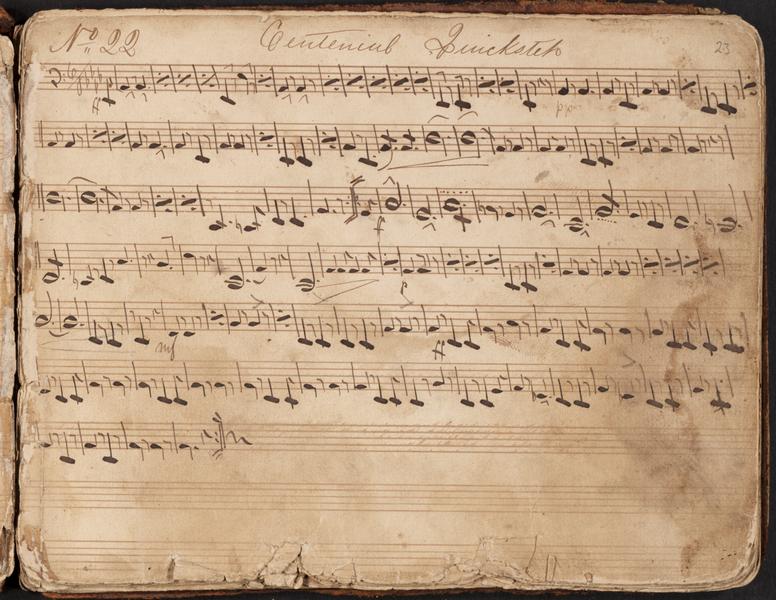 No 22 Centenial Quickstep 23
ff
pp
ff
p
mf
ff